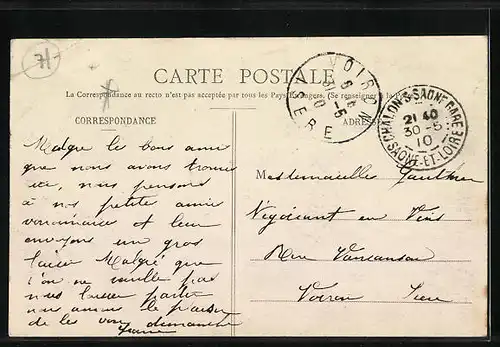 71
CARTE POSTALE
La Correspondance au recto n'est pas acceptée par tous les Pays Étrangers. (Se renseigner à la Poste)
CORRESPONDANCE
ADRESSE
VOIRON
ISERE
31 -5
10
CHALON-S-SAONE GARE
21 40
30 -5
10
SAONE-ET-LOIRE
Malgre les bons amis
que nous avons trouvés
ici, nous pensons
à nos petites amies
voironnaises et leur
envoyons un gros
baiser Malgré que
l'on ne veuille pas
nous laisser partir
nous aurons le plaisir
de les voir dimanche
Mesdemoiselles Gauthier
Négociant en Vins
Rue Vaucanson
Voiron Isère